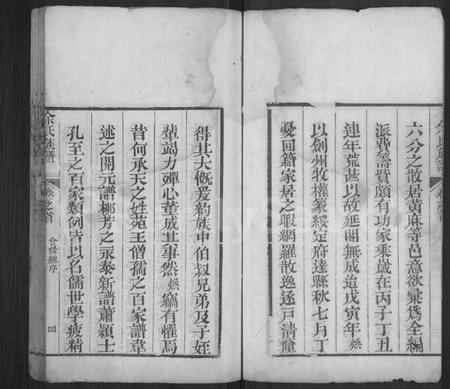 六分之散居黃麻等邑意欲彙爲全編
派費籌貲頗有功家乘厥在丙子丁丑
連年荒甚以故延閣無成迨戊寅年煥
以劍州牧權篆綏定府達縣秋七月丁
憂回籍家居之暇網羅散逸遂戸清童
余氏族譜
卷之首
得其大慨爰約族中伯叔兄弟及子姪
輩竭力殫心董成其事然煥竊有懼焉
昔何承天之姓苑王僧孺之百家譜韋
述之開元譜柳芳之永泰新譜蕭穎士
孔至之百家類例皆以名儒世學疲精
余氏族譜
卷之首
合修總序
四